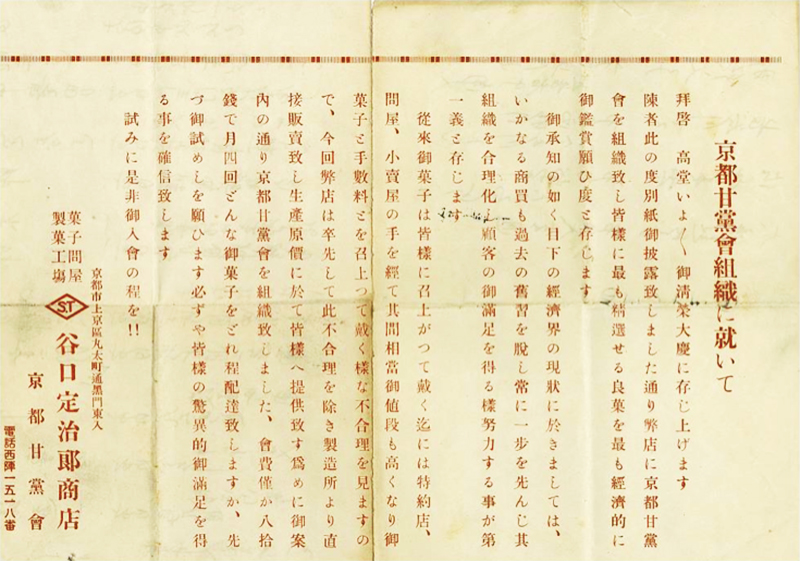 京都甘黨會組織に就いて
拜啓　高堂いよ〳〵御淸榮大慶に存じ上げます
陳者此の度別紙御披露致しました通り弊店に京都甘黨
會を組織致し皆樣に最も精選せる良菓を最も經濟的に
御鑑賞願ひ度と存じます
御承知の如く目下の經濟界の現狀に於きましては、
いかなる商買も過去の舊習を脫し常に一步を先んじ其
組織を合理化し顧客の御滿足を得る樣努力する事が第
一義と存じます
從來御菓子は皆樣に召上がつて戴く迄には特約店、
問屋、小賣屋の手を經て其間相當御値段も高くなり御
菓子と手數料とを召上つて戴く樣な不合理を見ますの
で、今回弊店は卒先して此不合理を除き製造所より直
接販賣致し生產原價に於て皆樣へ提供致す爲めに御案
內の通り京都甘黨會を組織致しました、會費僅か八拾
錢で月四回どんな御菓子をどれ程配達致しますか、先
づ御試めしを願ひます必ずや皆樣の驚異的御滿足を得
る事を確信致します
試みに是非御入會の程を!!
京都市上京區丸太町通黑門東入
菓子問屋
製菓工場
S.T
谷口定治郞商店
京都甘黨會
電話西陣一五一八番